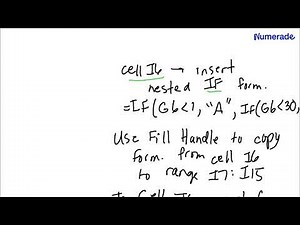 Numerade
cell I6 → insert
nested IF form.
=IF(G6<1, "A", IF(G6<30,
Use Fill Handle to copy
form. from cell I6
to range I7:I15